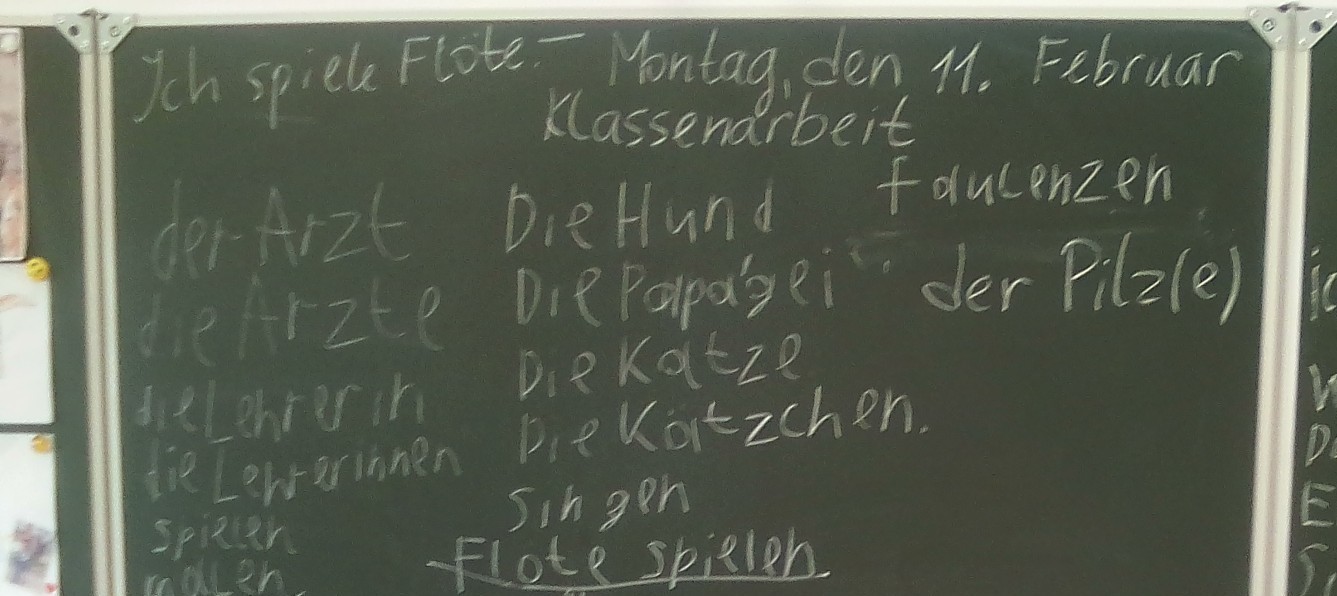 Ich spiele Flöte. – Montag, den 11. Februar
Klassenarbeit
faulenzen
der Arzt
die Ärzte
die Lehrerin
die Lehrerinnen
spielen
malen
Die Hund
Die Papagei
Die Katze
Die Kätzchen.
singen
Flöte spielen
der Pilz(e)